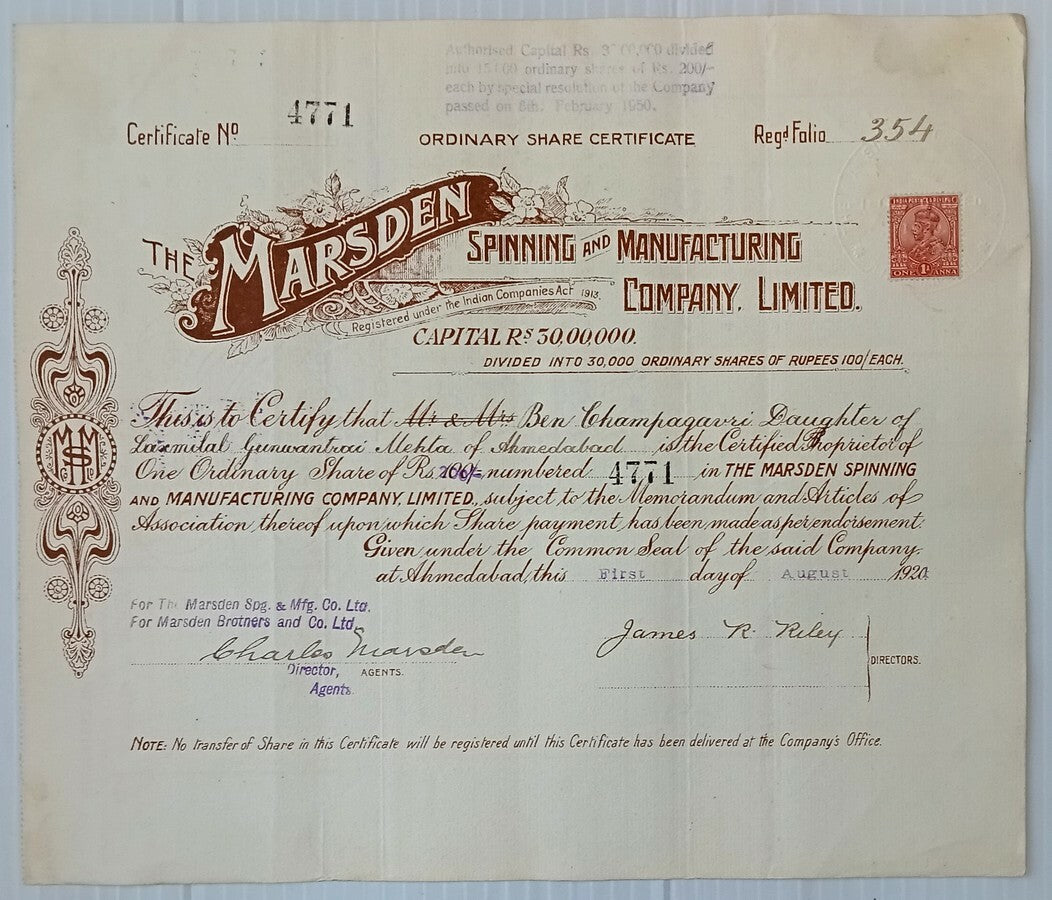 Authorised Capital Rs. 3 00,000 divided
into 15,000 ordinary shares of Rs. 200/-
each by special resolution of the Company
passed on 8th. February 1950.
4771
Certificate No
ORDINARY SHARE CERTIFICATE
Regd Folio 354
THE MARSDEN
SPINNING AND MANUFACTURING
COMPANY, LIMITED.
Registered under the Indian Companies Act 1913.
INDIA POSTAGE
ONE 1A ANNA
CAPITAL RS 30,00,000.
DIVIDED INTO 30,000 ORDINARY SHARES OF RUPEES 100/EACH.
This is to Certify that Mr & Mrs Ben Champagavri Daughter of
Laxmilal Gunwantrai Mehta of Ahmedabad is the Certified Proprietor of
One Ordinary Share of Rs. 200/- numbered 4771 in THE MARSDEN SPINNING
AND MANUFACTURING COMPANY, LIMITED, subject to the Memorandum and Articles of
Association thereof upon which Share payment has been made as per endorsement.
Given under the Common Seal of the said Company,
at Ahmedabad, this First day of August 1920
For The Marsden Spg. & Mfg. Co. Ltd.
For Marsden Brothers and Co. Ltd.
Charles Marsden
James R. Riley
Director,
AGENTS.
Agents.
DIRECTORS.
NOTE: No transfer of Share in this Certificate will be registered until this Certificate has been delivered at the Company's Office.